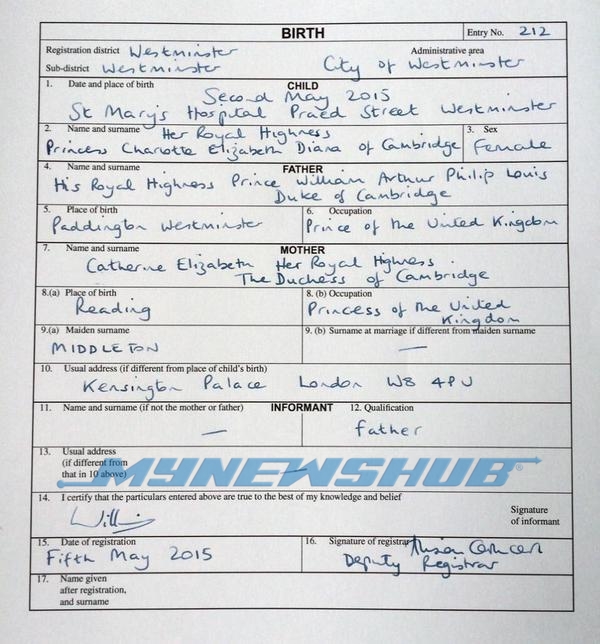 BIRTH
Entry No. 212
Registration district Westminster
Administrative area
Sub-district Westminster
City of Westminster
1. Date and place of birth
CHILD
Second May 2015
St Mary's Hospital Praed Street Westminster
2. Name and surname Her Royal Highness
Princess Charlotte Elizabeth Diana of Cambridge
3. Sex
Female
4. Name and surname
FATHER
His Royal Highness Prince William Arthur Philip Louis
Duke of Cambridge
5. Place of birth
Paddington Westminster
6. Occupation
Prince of the United Kingdom
7. Name and surname
MOTHER
Catherine Elizabeth Her Royal Highness
The Duchess of Cambridge
8.(a) Place of birth
Reading
8. (b) Occupation
Princess of the United
Kingdom
9.(a) Maiden surname
MIDDLETON
9. (b) Surname at marriage if different from maiden surname
—
10. Usual address (if different from place of child's birth)
Kensington Palace London W8 4PU
11. Name and surname (if not the mother or father)
INFORMANT
—
12. Qualification
Father
13. Usual address
(if different from
that in 10 above)
—
MYNEWSHUB
14. I certify that the particulars entered above are true to the best of my knowledge and belief
William
Signature
of informant
15. Date of registration
Fifth May 2015
16. Signature of registrar
Deputy Registrar
17. Name given
after registration,
and surname